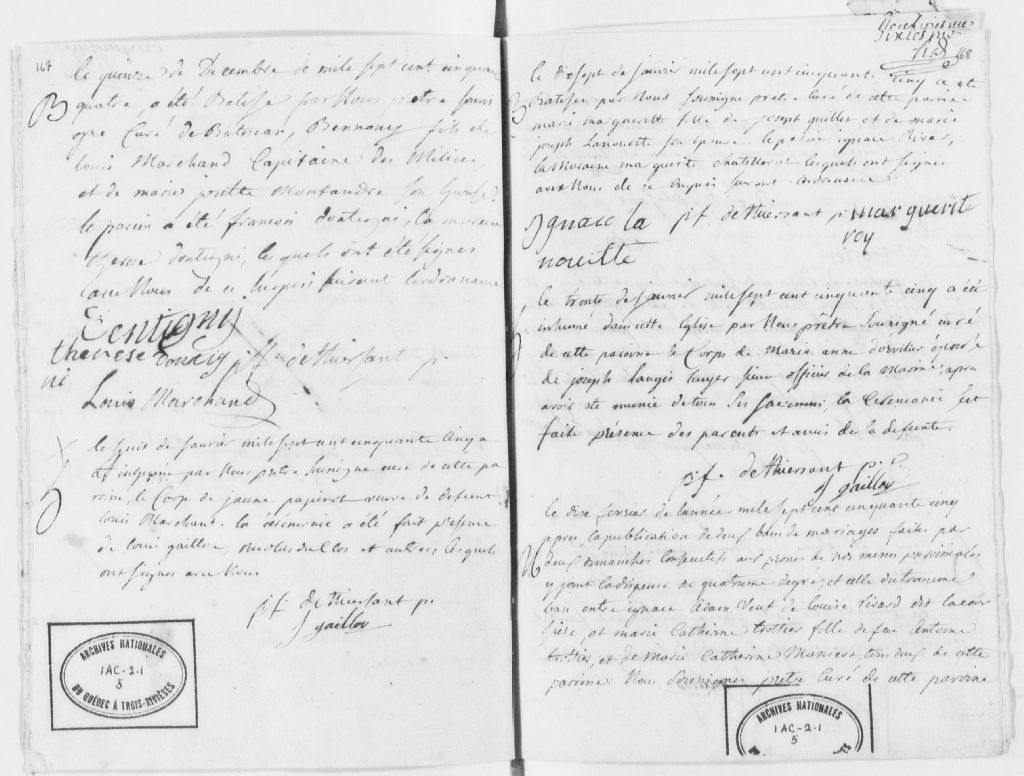 167
B
le quinze de Decembre de mile sept cent cinquante
quatre, a été Batisé par Nous pretre soussi
gné Curé de Batiscan, Bennoney fils de
louis Marchand Capitaine des Milices,
et de marie josette Montandre son Epouse.
le parein a été francois dontigni, la maraine
therese dontigni, les quels ont été signes
avec Nous de ce enquis suivant l'ordonnance
Dentigny
therese Dontig p. f. de Thiersant p.
ni
Louis Marchand
le huit de janvier mile sept cent cinquante cinq a
été inhumé par Nous pretre soussigne curé de cette pa
roisse, le Corps de jeanne papinot veuve de defeunt
louis Marchand. la cérémonie a été fait présence
de louis gaillou, nicolas duclos et autres lesquels
ont signes avec Nous
p. f. de Thiersant p.
gaillou
ARCHIVES NATIONALES
1AC-2.1
5
DU QUÉBEC À TROIS-RIVIÈRES
168
B
le dixsept de janvier mile sept cent cinquante cinq a été
Batisée par Nous soussigne pretre Curé de cette paroisse
marie marguerite fille de joseph guillet et de marie
joseph Lanouette son epouse. le parein ignace Rivar,
la Maraine marguerite chatellerot lesquels ont signes
avec Nous de ce enquis suivant l'ordonnance.
Ignace la p. f. de Thiersant p. marguerite
roy
nouette
le trente de janvier mile sept cent cinquante cinq a été
inhumé dans cette Eglise par Nous prêtre soussigné curé
de cette paroisse le Corps de Marie anne dorvilier épouse
de joseph Langis officier de la Marine, apres
avoir été munie de tous ses sacremens, la Cérémonie s'est
faite présence des parents et amis de la defunte.
p. f. de Thiersant p. c.
gaillou
le dix fevrier de l'année mile sept cent cinquante cinq
apres la publication de deux bans de mariages faites par
deux dimanches consecutifs aux prones de nos messes paroissiales
y joint la dispense de quatrieme degré, et celle du troisieme
ban entre ignace Adam veuf de louise Rivard dit lacour
siere, et marie Catherine trottier fille de feu Antoine
trottier, et de Marie Catherine tous deux de cette
paroisse: Nous soussigne prêtre Curé de cette paroisse
ARCHIVES NATIONALES
1AC-2.1
5